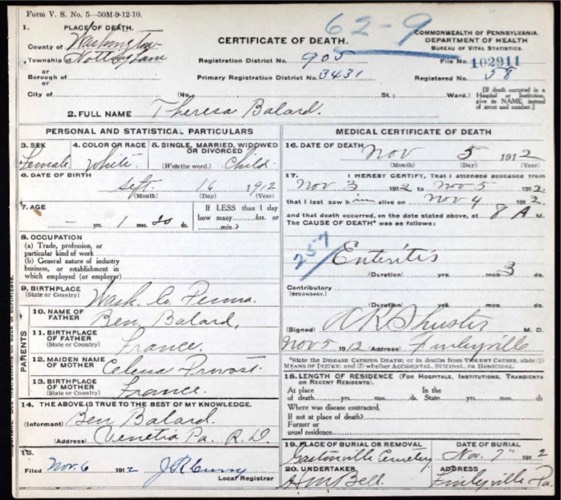 Form V. S. No. 5—50M-9-12-10.
62-9
CERTIFICATE OF DEATH.
COMMONWEALTH OF PENNSYLVANIA.
DEPARTMENT OF HEALTH
BUREAU OF VITAL STATISTICS.
1. PLACE OF DEATH.
County of Washington
Township of Nottingham
or
Borough of
or
City of
Registration District No. 905
Primary Registration District No. 3431
File No. 102911
Registered No. 58
(No. St.; Ward.)
[If death occurred in a Hospital or Institution, give its NAME instead of street and number.]
2. FULL NAME Theresa Balard.
PERSONAL AND STATISTICAL PARTICULARS
3. SEX Female
4. COLOR OR RACE White
5. SINGLE, MARRIED, WIDOWED OR DIVORCED (Write the word.) Child
6. DATE OF BIRTH
Sept. 16 1912
(Month) (Day) (Year)
7. AGE
— yrs. 1 mos. 20 ds.
If LESS than 1 day
how many hrs. or
min.?
8. OCCUPATION
(a) Trade, profession, or
particular kind of work
(b) General nature of industry
business, or establishment in
which employed (or employer)
9. BIRTHPLACE
(State or Country) Wash. Co. Penna.
PARENTS
10. NAME OF FATHER Ben Balard,
11. BIRTHPLACE OF FATHER
(State or Country) France.
12. MAIDEN NAME OF MOTHER Celena Provost
13. BIRTHPLACE OF MOTHER
(State or Country) France.
14. THE ABOVE IS TRUE TO THE BEST OF MY KNOWLEDGE.
(Informant) Ben Balard.
(Address) Venetia Pa. R.D.
15.
Filed Nov. 6 1912
Local Registrar
MEDICAL CERTIFICATE OF DEATH
16. DATE OF DEATH
Nov 5 1912
(Month) (Day) (Year)
17. I HEREBY CERTIFY, That I attended deceased from
Nov 3 1912 to Nov 5 1912
that I last saw him alive on Nov 4 1912
and that death occurred, on the date stated above, at 8 A M.
The CAUSE OF DEATH* was as follows:
257
Enteritis
(Duration) yrs. mos. 3 ds.
Contributory
(SECONDARY.)
(Duration) yrs. mos. ds.
Signed A R Shuster M. D.
Nov 5 1912 Finleyville
*State the DISEASE CAUSING DEATH; or in deaths from VIOLENT CAUSES, state (1)
MEANS OF INJURY; and (2) whether ACCIDENTAL, SUICIDAL, or HOMICIDAL.
18. LENGTH OF RESIDENCE (FOR HOSPITALS, INSTITUTIONS, TRANSIENTS
OR RECENT RESIDENTS).
At place
of death yrs. mos. ds.
In the
State yrs. mos. ds.
Where was disease contracted,
if not at place of death?
Former or
usual residence
19. PLACE OF BURIAL OR REMOVAL
Gastonville Cemetery
DATE OF BURIAL
Nov. 7" 1912
20. UNDERTAKER
Bell
ADDRESS
Finleyville Pa.